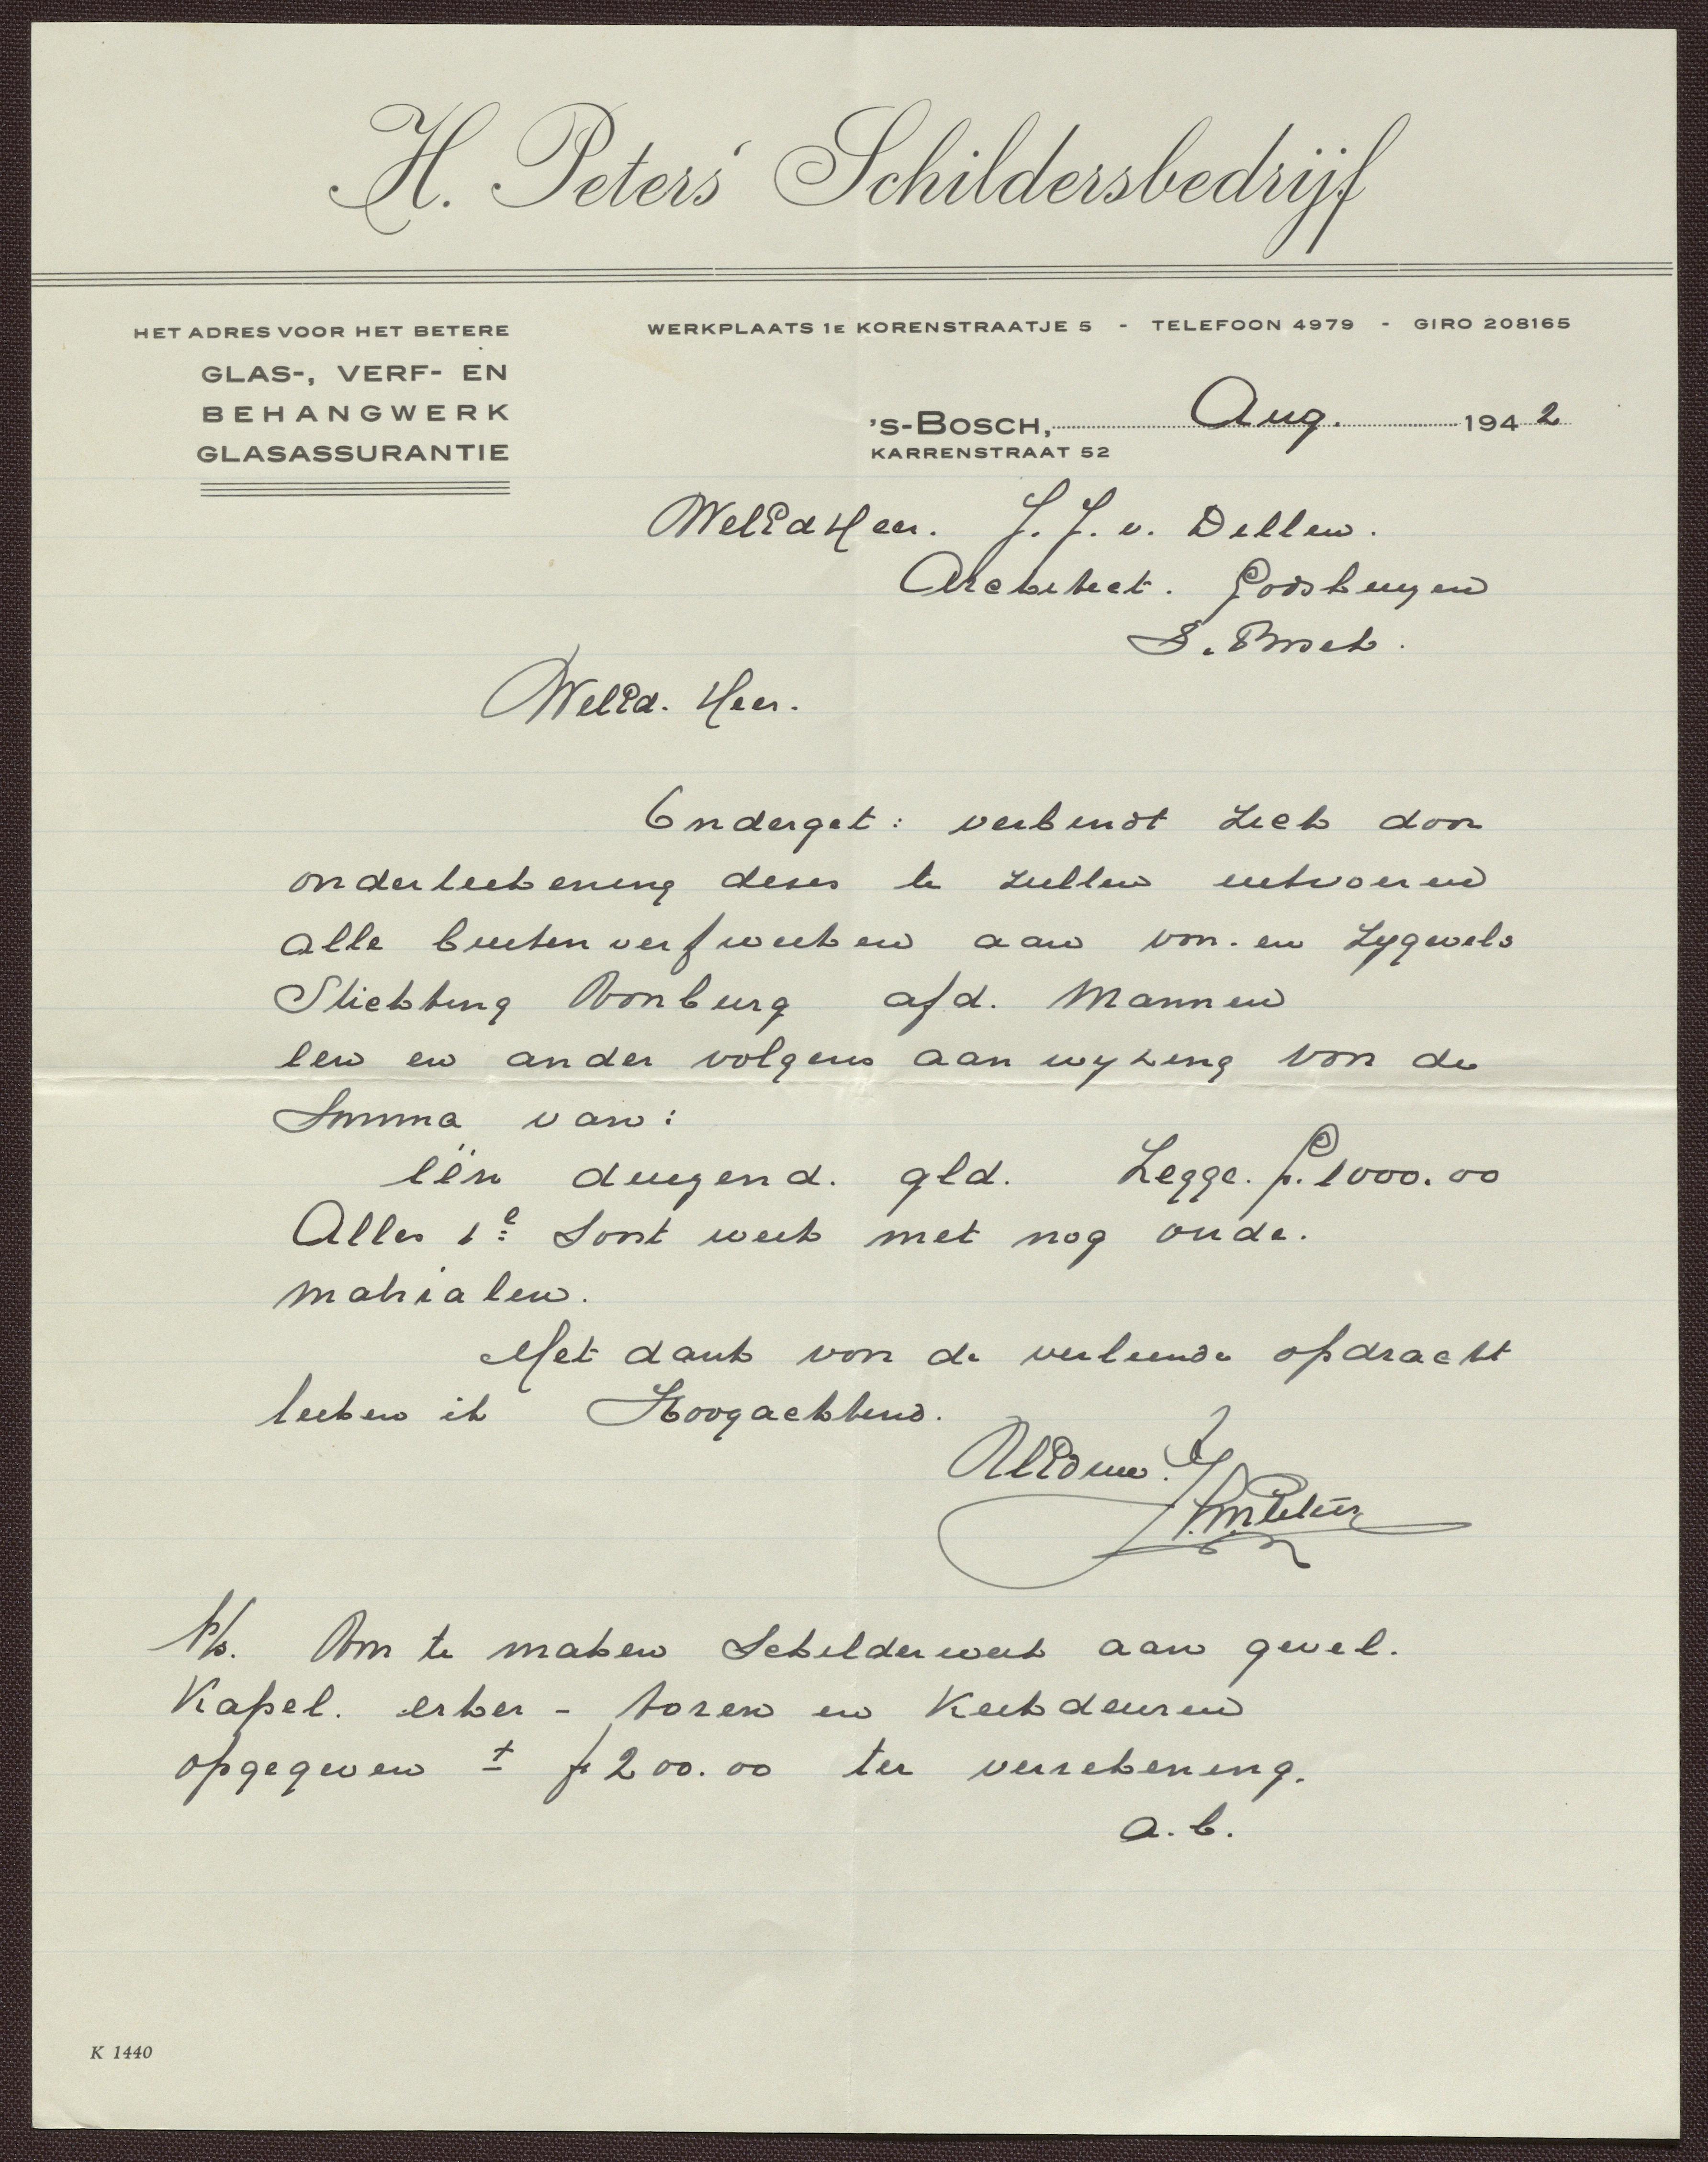 H. Peters' Schildersbedrijf
HET ADRES VOOR HET BETERE
GLAS-, VERF- EN
BEHANGWERK
GLASASSURANTIE
WERKPLAATS 1E KORENSTRAATJE 5 - TELEFOON 4979 - GIRO 208165
'S-BOSCH, Aug. 1942
KARRENSTRAAT 52
WelEdHeer. J. J. v. Dillen.
Architect. Godshuizen
S. Bosch.
WelEd. Heer.
Onderget: verbindt zich door
onderteekening dezes te zullen uitvoeren
alle buitenverfwerken aan voor- en zijgevels
Stichting Voorburg afd. Mannen
een en ander volgens aanwijzing voor de
Somma van:
één duizend. gld. Zegge. f. 1000.00
Alles 1e Soort werk met nog oude.
matrialen.
Met dank voor de verleende opdracht
teeken ik Hoogachtend.
UEdDw.
H. M. Peters
P/s. Voor te maken Schilderwerk aan gevel.
Kapel. erker - toren en Kerkdeuren
opgegeven ± f 200.00 ter verrekening.
a. b.
K 1440